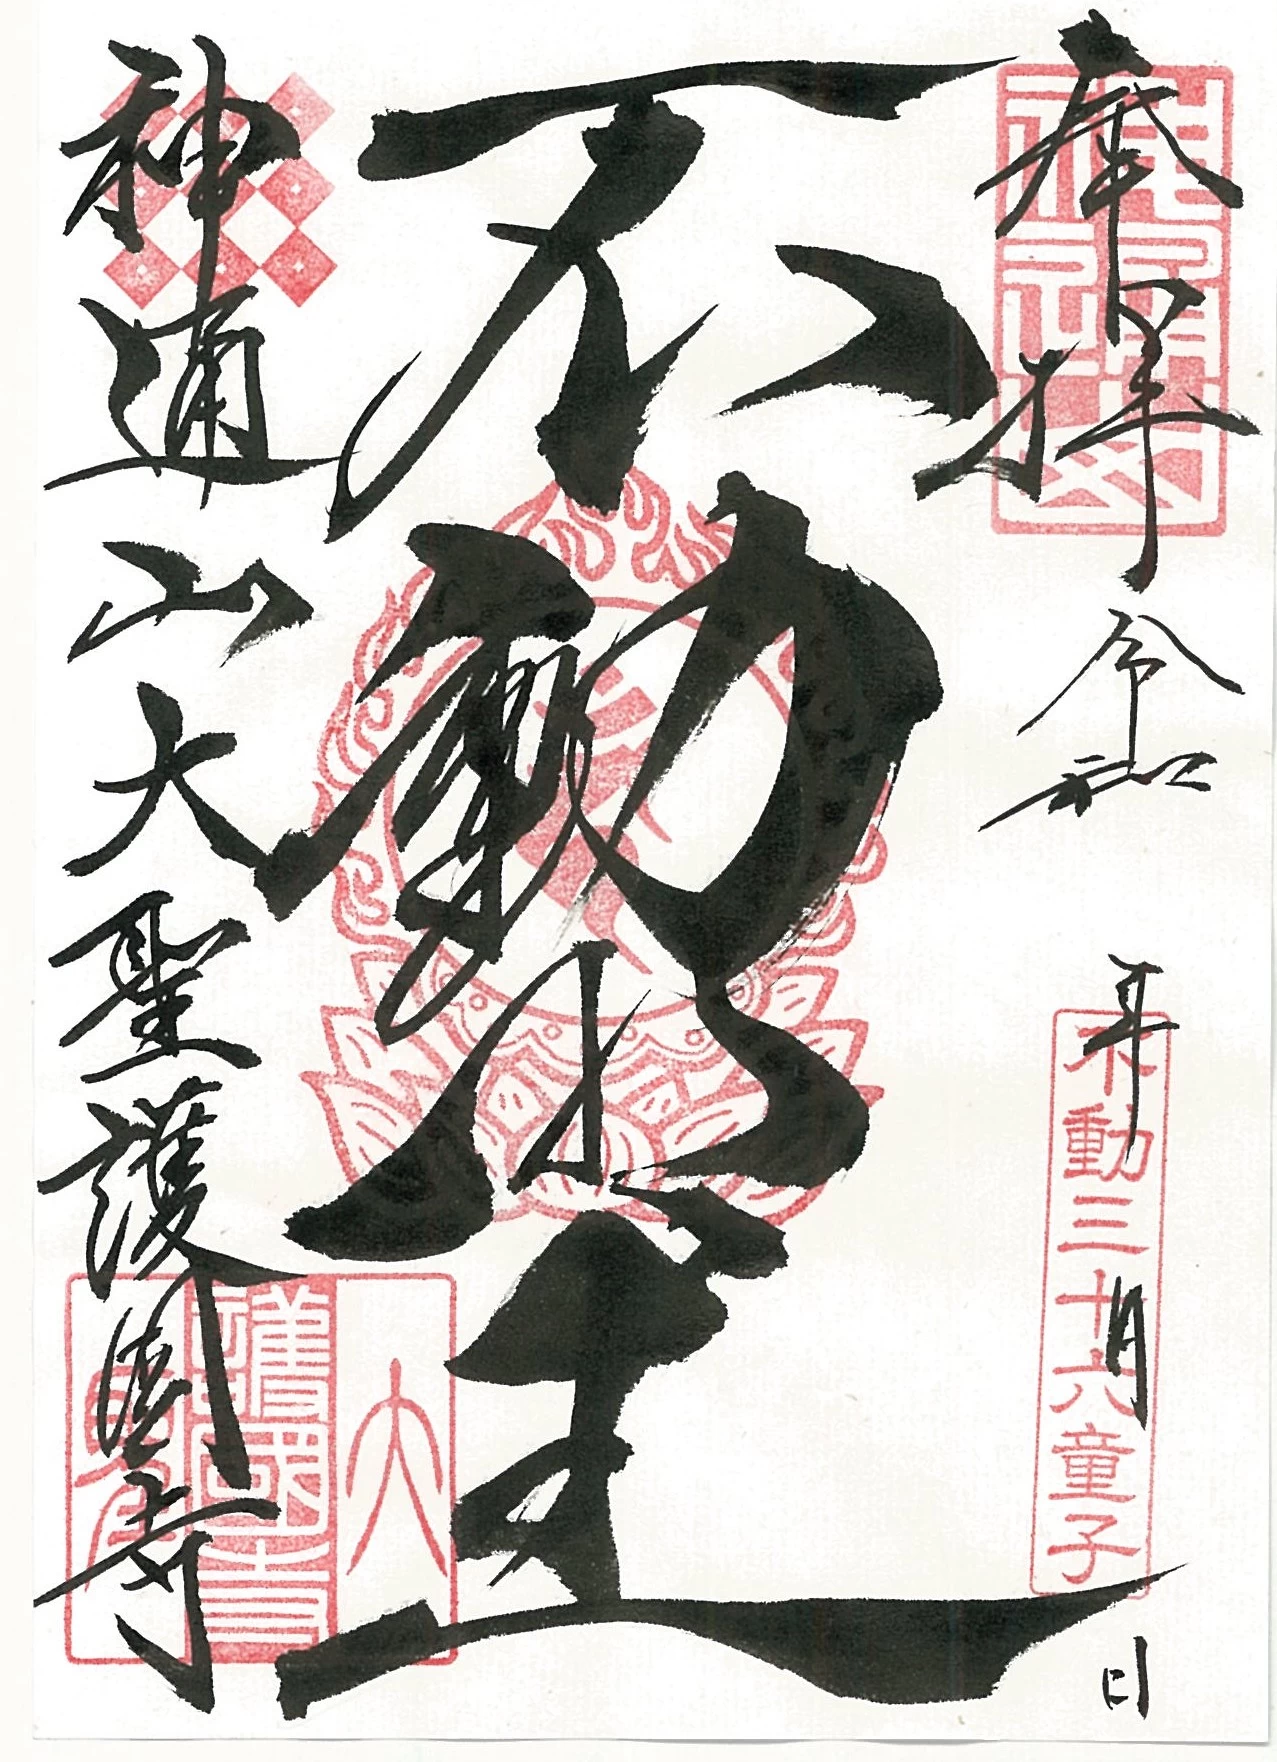 奉拝
令和 年 月 日
不動三十六童子
不動明王
神通山大聖護國寺
大
護國寺